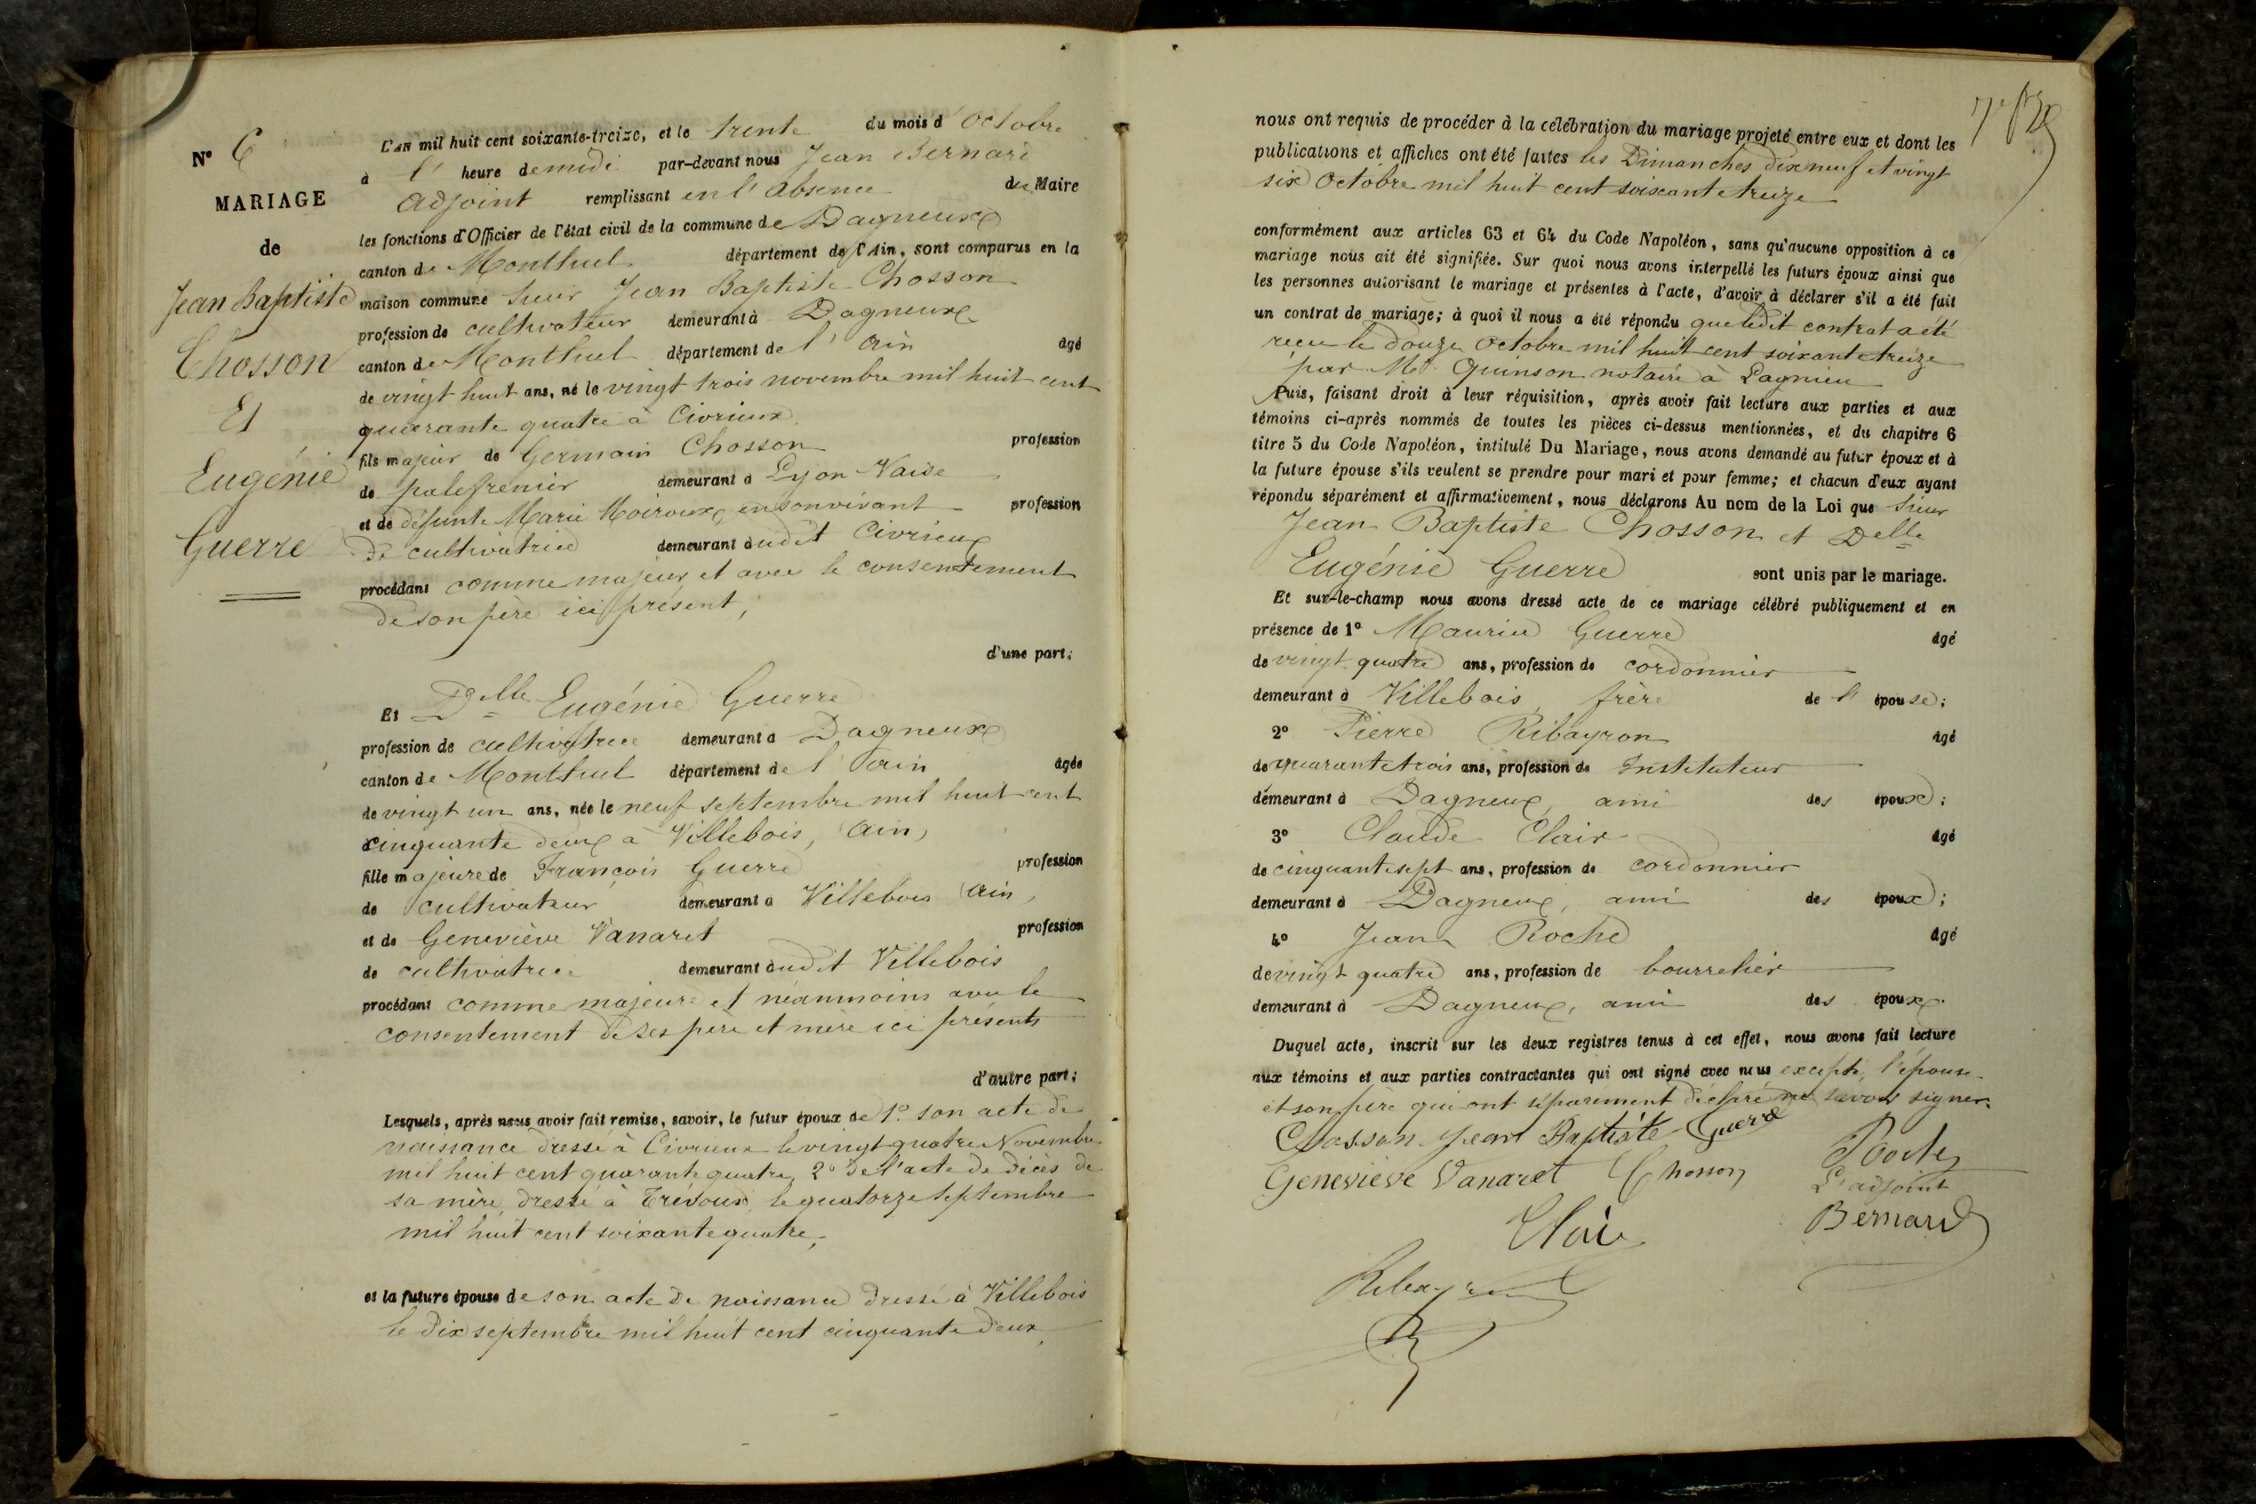 N° 6
MARIAGE
de
Jean Baptiste
Chosson
Et
Eugénie
Guerre
L'an mil huit cent soixante-treize, et le trente du mois d'Octobre
à l'heure de midi par-devant nous Jean Bernard
adjoint remplissant en l'absence du Maire
les fonctions d'Officier de l'état civil de la commune de Dagneux
canton de Montluel département de l'Ain, sont comparus en la
maison commune Sieur Jean Baptiste Chosson
profession de cultivateur demeurant à Dagneux
canton de Montluel département de l'Ain âgé
de vingt huit ans, né le vingt trois novembre mil huit cent
quarante quatre à Civrieux
fils majeur de Germain Chosson profession
de palefrenier demeurant à Lyon-Vaise
et de défunte Marie Moiroux, en son vivant profession
de cultivatrice demeurant audit Civrieux
procédant comme majeur et avec le consentement
de son père ici présent,
d'une part;
Et Delle Eugénie Guerre
profession de cultivatrice demeurant à Dagneux
canton de Montluel département de l'Ain âgée
de vingt un ans, née le neuf septembre mil huit cent
cinquante deux à Villebois, (Ain)
fille majeure de François Guerre profession
de cultivateur demeurant à Villebois (Ain)
et de Geneviève Vanaret profession
de cultivatrice demeurant audit Villebois
procédant comme majeure et néanmoins avec le
consentement de ses père et mère ici présents
d'autre part;
Lesquels, après nous avoir fait remise, savoir, le futur époux de 1° son acte de
naissance dressé à Civrieux le vingt quatre Novembre
mil huit cent quarante quatre, 2° de l'acte de décès de
sa mère, dressé à Trévoux, le quatorze septembre
mil huit cent soixante quatre,
et la future épouse de son acte de naissance dressé à Villebois
le dix septembre mil huit cent cinquante deux,
nous ont requis de procéder à la célébration du mariage projeté entre eux et dont les
publications et affiches ont été faites les Dimanches dix neuf et vingt
six Octobre mil huit cent soixante treize
conformément aux articles 63 et 64 du Code Napoléon, sans qu'aucune opposition à ce
mariage nous ait été signifiée. Sur quoi nous avons interpellé les futurs époux ainsi que
les personnes autorisant le mariage et présentes à l'acte, d'avoir à déclarer s'il a été fait
un contrat de mariage; à quoi il nous a été répondu que ledit contrat a été
reçu le douze Octobre mil huit cent soixante treize
par Me Quinson notaire à Lagnieu
Puis, faisant droit à leur réquisition, après avoir fait lecture aux parties et aux
témoins ci-après nommés de toutes les pièces ci-dessus mentionnées, et du chapitre 6
titre 5 du Code Napoléon, intitulé Du Mariage, nous avons demandé au futur époux et à
la future épouse s'ils veulent se prendre pour mari et pour femme; et chacun d'eux ayant
répondu séparément et affirmativement, nous déclarons Au nom de la Loi que Sieur
Jean Baptiste Chosson et Delle
Eugénie Guerre sont unis par le mariage.
Et sur-le-champ nous avons dressé acte de ce mariage célébré publiquement et en
présence de 1° Maurice Guerre âgé
de vingt quatre ans, profession de cordonnier
demeurant à Villebois, frère de l'épouse;
2° Pierre Ribayron âgé
de quarante trois ans, profession de Instituteur
demeurant à Dagneux, ami des époux;
3° Claude Clair âgé
de cinquante sept ans, profession de cordonnier
demeurant à Dagneux, ami des époux;
4° Jean Roche âgé
de vingt quatre ans, profession de bourrelier
demeurant à Dagneux, ami des époux.
Duquel acte, inscrit sur les deux registres tenus à cet effet, nous avons fait lecture
aux témoins et aux parties contractantes qui ont signé avec nous excepté, l'épouse
et son père qui ont séparément déclaré ne savoir signer.
Chosson Jean Baptiste Guerre
Geneviève Vanaret Chosson Roche
L'adjoint
Clair Bernard
Ribayron